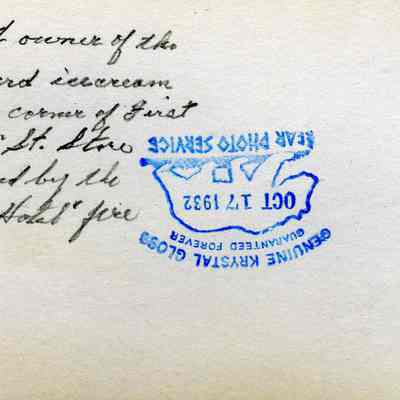 owner of the
icecream
corner of First
St. Store
by the
Hotel" fire
GENUINE KRYSTAL GLOSS
GUARANTEED FOREVER
OCT 17 1932
REAR PHOTO SERVICE